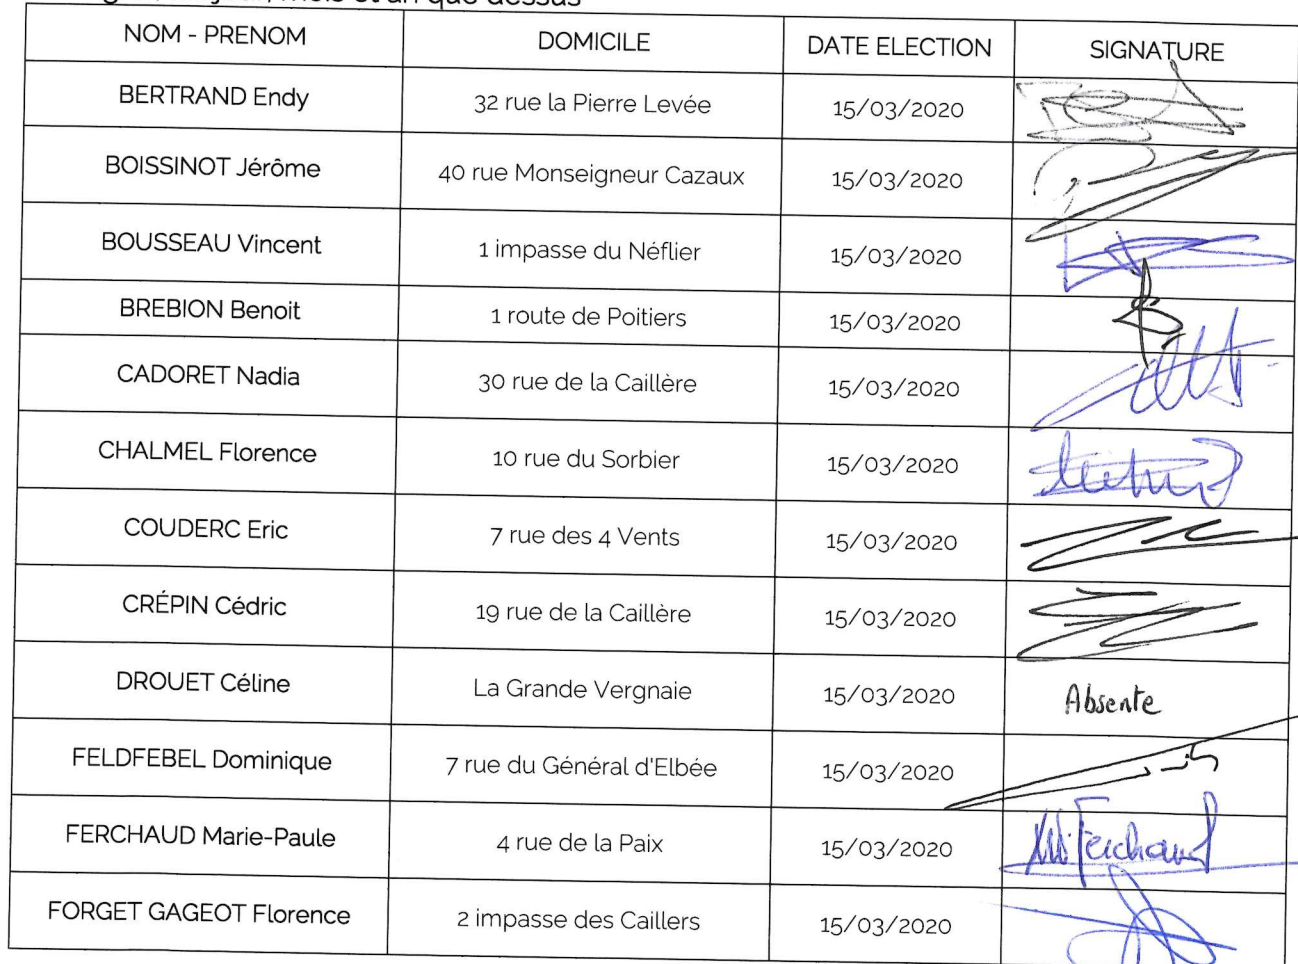 jour, mois et an que dessus
NOM - PRENOM DOMICILE DATE ELECTION SIGNATURE
BERTRAND Endy 32 rue la Pierre Levée 15/03/2020
BOISSINOT Jérôme 40 rue Monseigneur Cazaux 15/03/2020
BOUSSEAU Vincent 1 impasse du Néflier 15/03/2020
BREBION Benoit 1 route de Poitiers 15/03/2020
CADORET Nadia 30 rue de la Caillère 15/03/2020
CHALMEL Florence 10 rue du Sorbier 15/03/2020
COUDERC Eric 7 rue des 4 Vents 15/03/2020
CRÉPIN Cédric 19 rue de la Caillère 15/03/2020
DROUET Céline La Grande Vergnaie 15/03/2020 Absente
FELDFEBEL Dominique 7 rue du Général d'Elbée 15/03/2020
FERCHAUD Marie-Paule 4 rue de la Paix 15/03/2020 Ferchaud
FORGET GAGEOT Florence 2 impasse des Caillers 15/03/2020